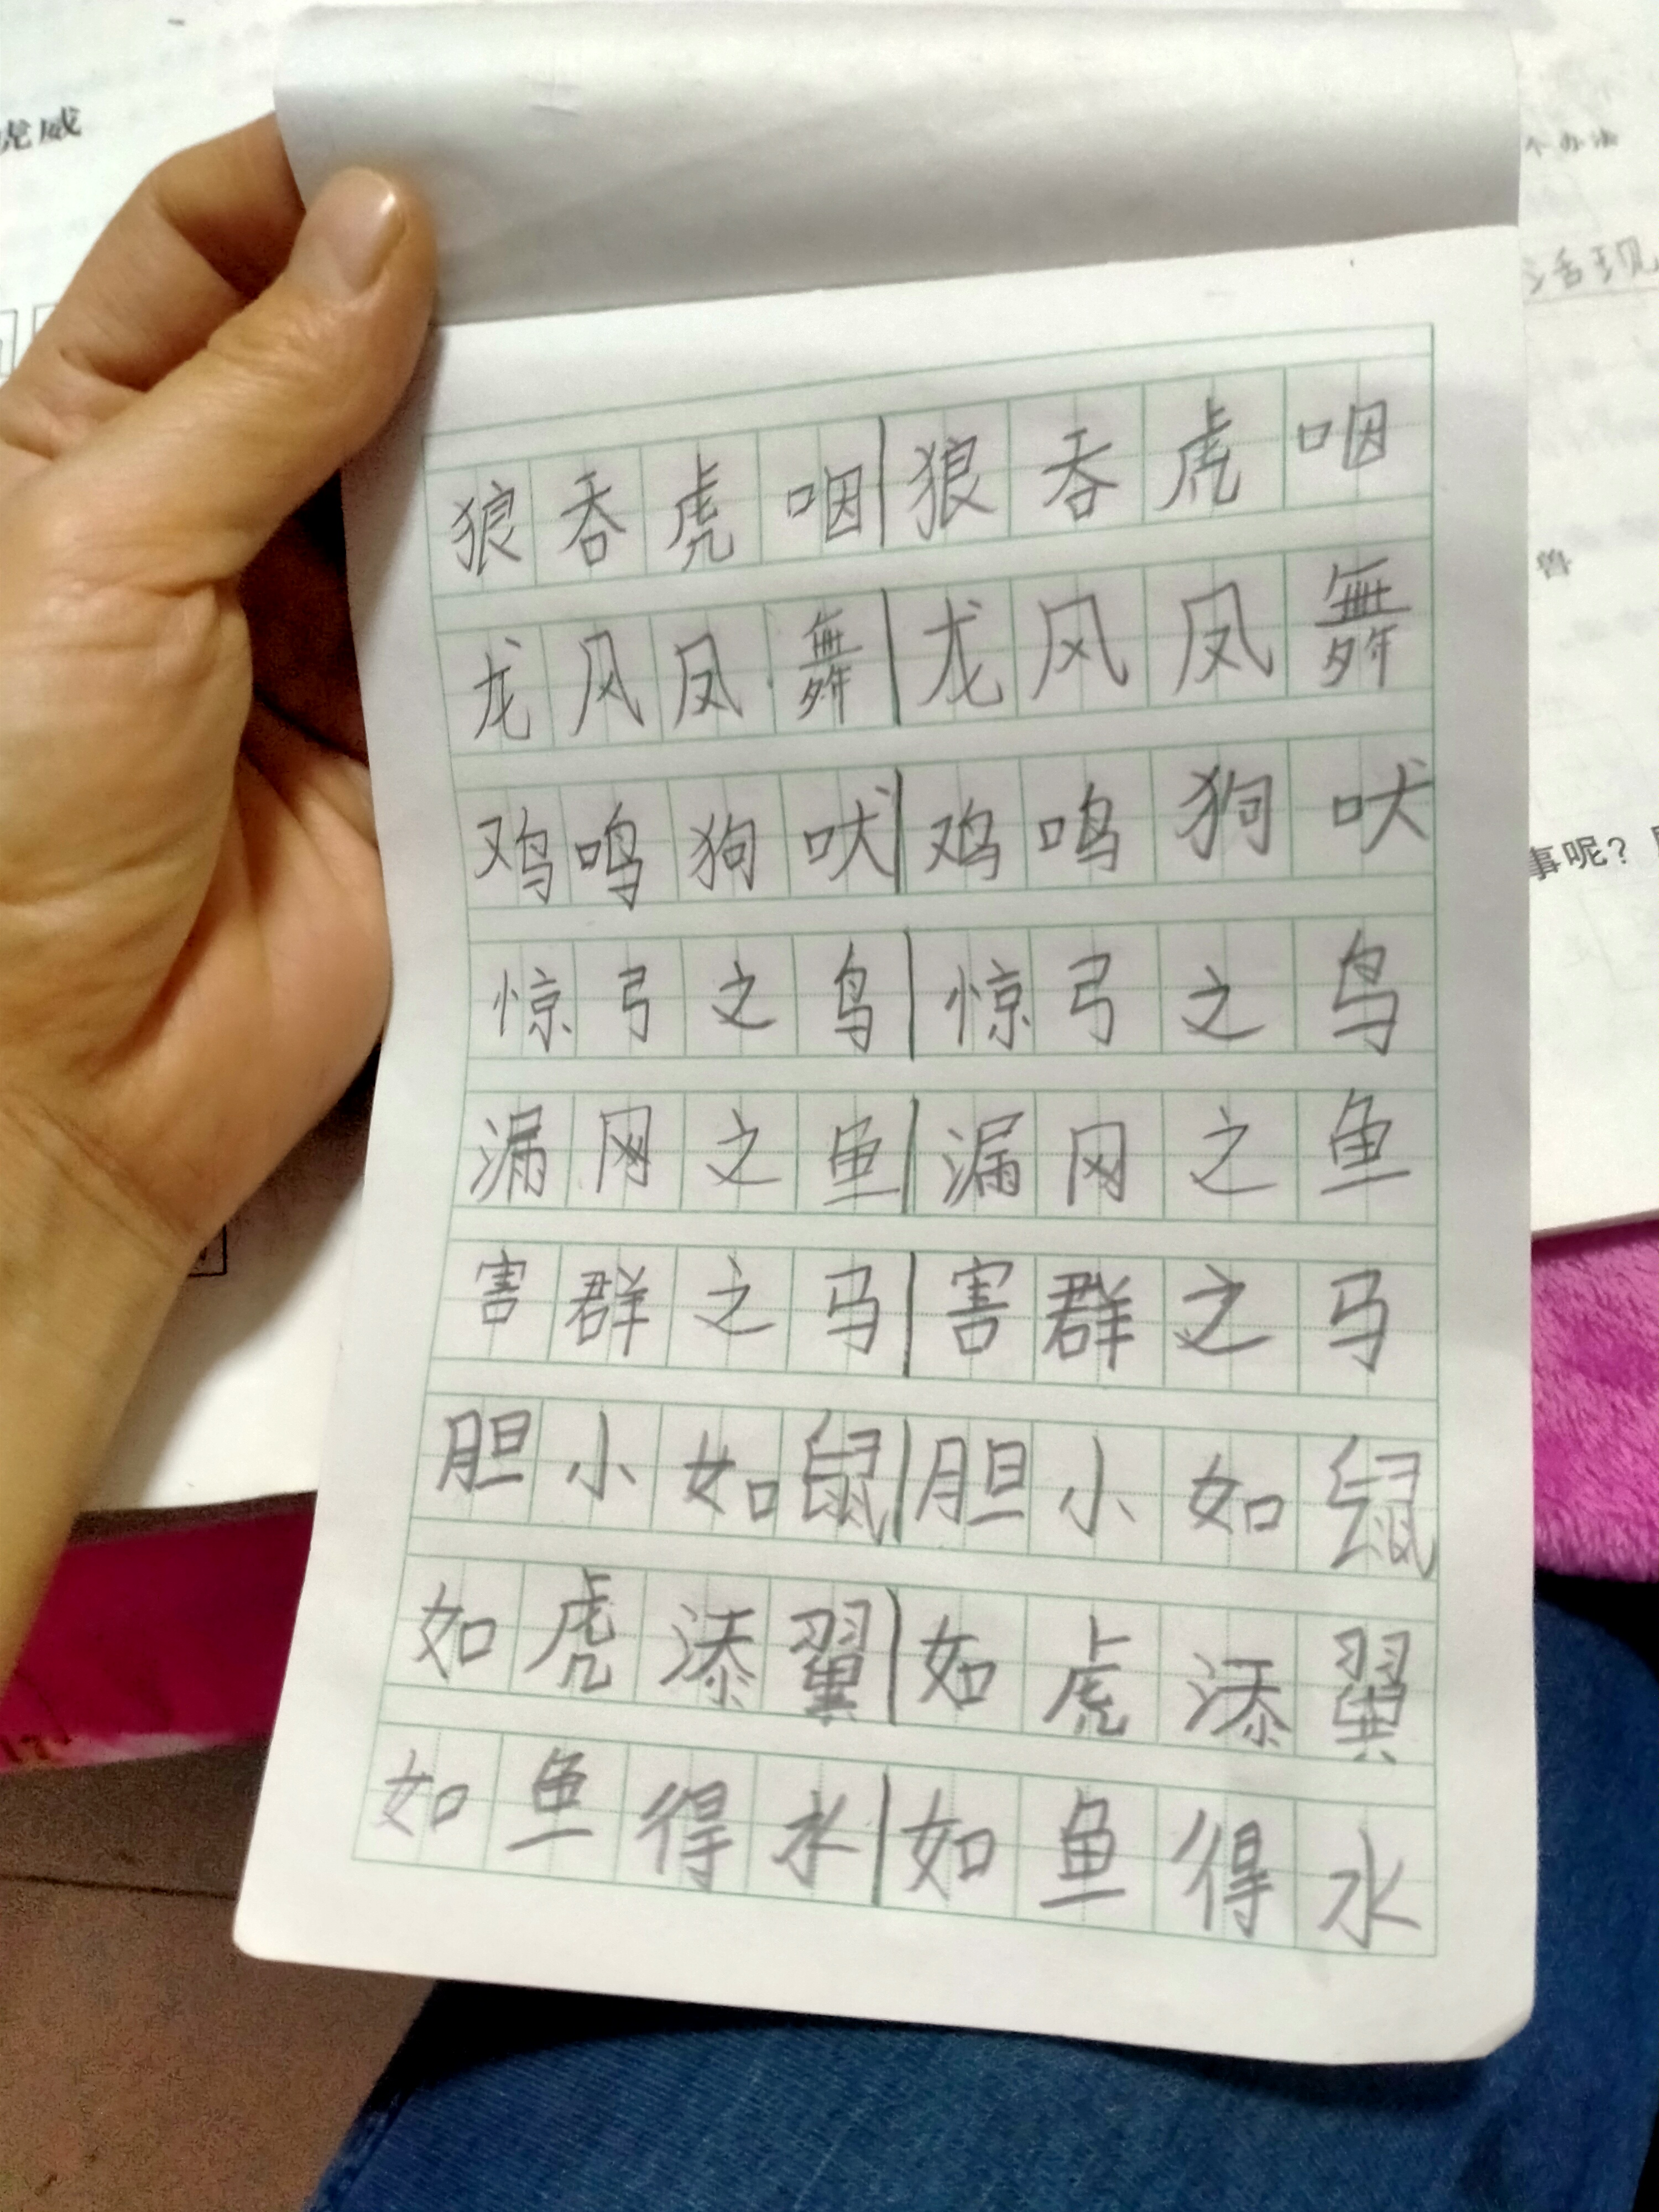 虎威
个办法
活现
狼吞虎咽狼吞虎咽
龙风凤舞龙风凤舞
兽
鸡鸣狗吠鸡鸣狗吠
事呢?
惊弓之鸟惊弓之鸟
漏网之鱼漏网之鱼
害群之马害群之马
胆小如鼠胆小如鼠
如虎添翼如虎添翼
如鱼得水如鱼得水